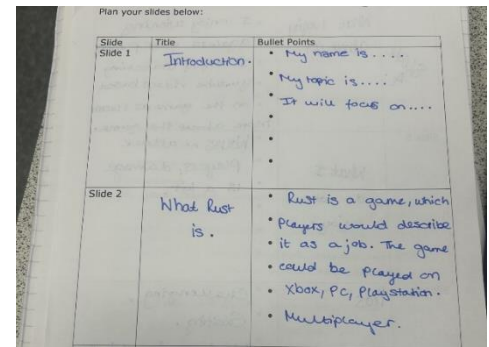 Plan your slides below:
Slide Title Bullet Points
Slide 1 Introduction. • My name is ....
• My topic is ....
• It will focus on ....
•
•
•
Slide 2 What Rust • Rust is a game, which
is. • players would describe
• it as a job. The game
• could be played on
• Xbox, PC, Playstation.
• Multiplayer.